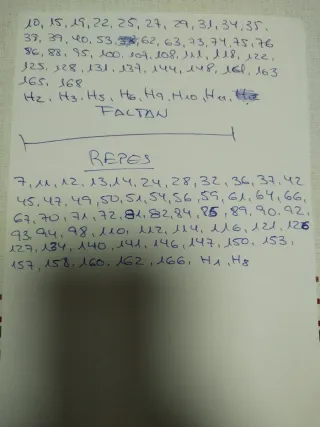 10, 15, 19, 22, 25, 27, 29, 31, 34, 35,
38, 39, 40, 53, 62, 63, 73, 74, 75, 76
86, 88, 95, 100, 107, 108, 111, 118, 122,
125, 128, 131, 137, 144, 148, 161, 163
165, 168
H2, H3, H5, H6, H9, H10, H11,
FALTAN
REPES
7, 11, 12, 13, 14, 24, 28, 32, 36, 37, 42
45, 47, 49, 50, 51, 54, 56, 59, 61, 64, 66,
67, 70, 71, 72, 81, 82, 84, 85, 89, 90, 92,
93, 94, 98, 110, 112, 114, 116, 121, 126
127, 134, 140, 141, 146, 147, 150, 153,
157, 158, 160, 162, 166, H1, H8